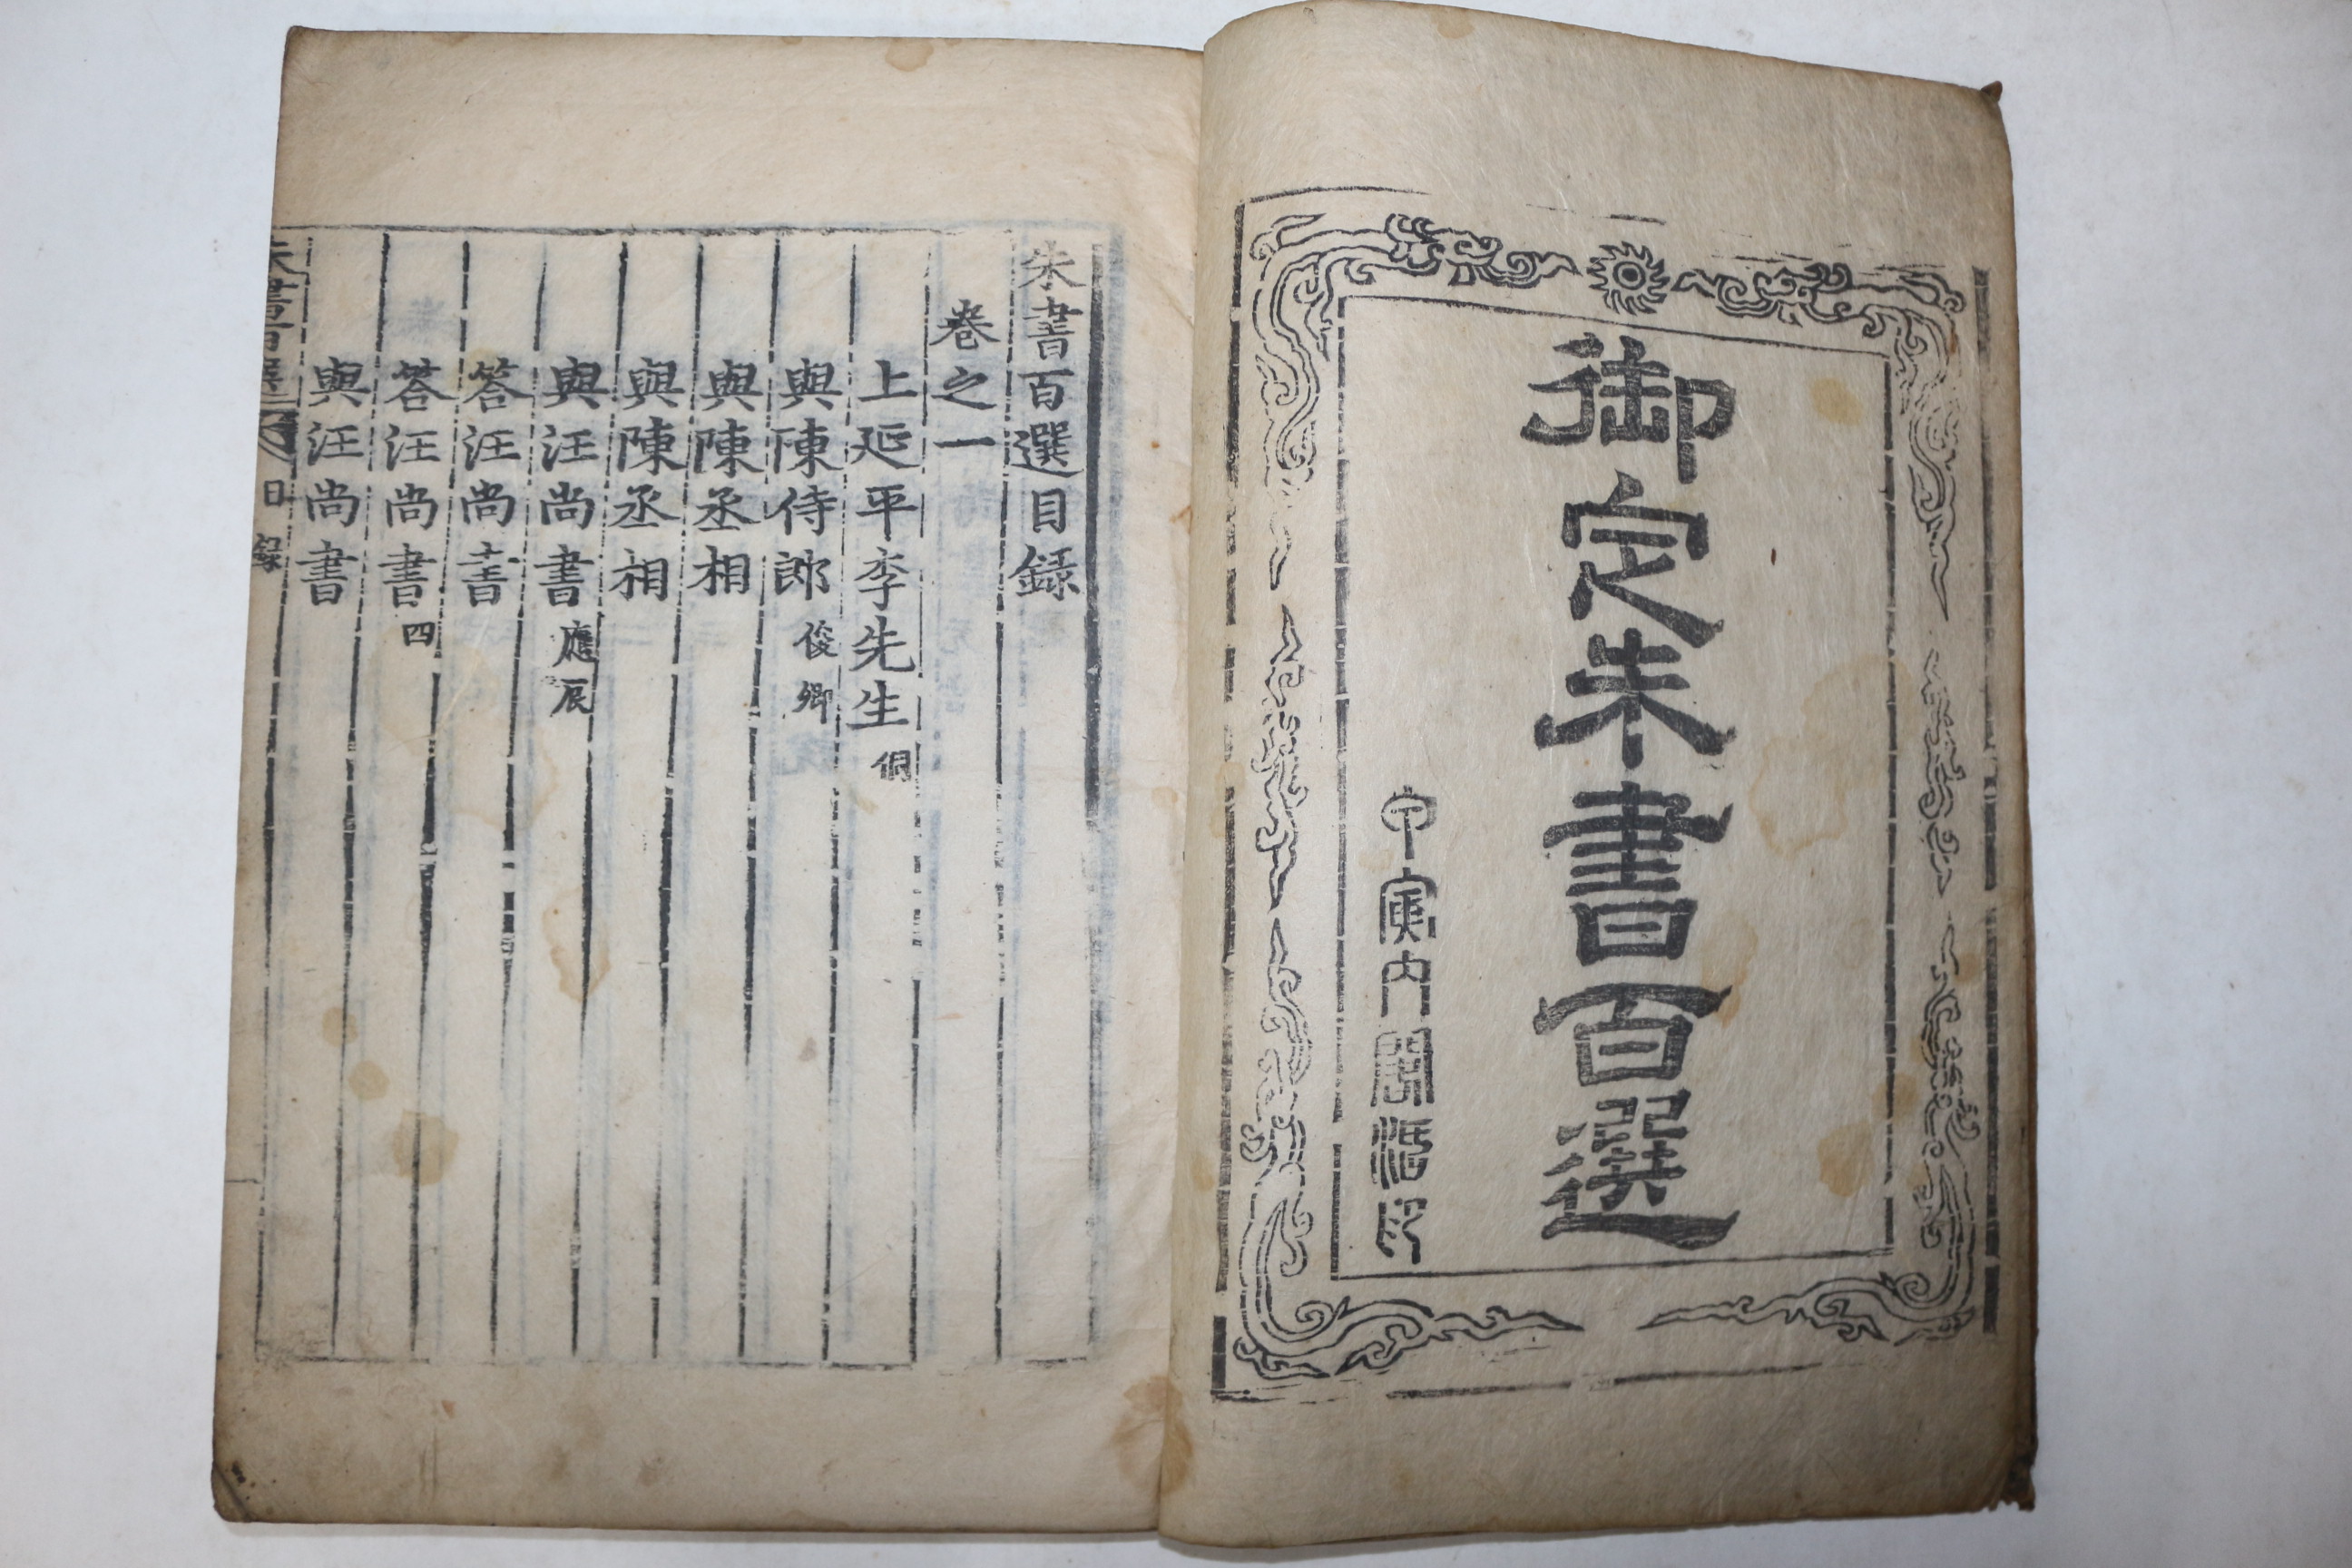 御定朱書百選
甲寅內閣活印
朱書百選目錄
卷之一
上延平李先生 侗
與陳侍郎 俊卿
與陳丞相
與陳丞相
與汪尚書 應辰
答汪尚書
答汪尚書 四
與汪尚書
朱書百選 目錄